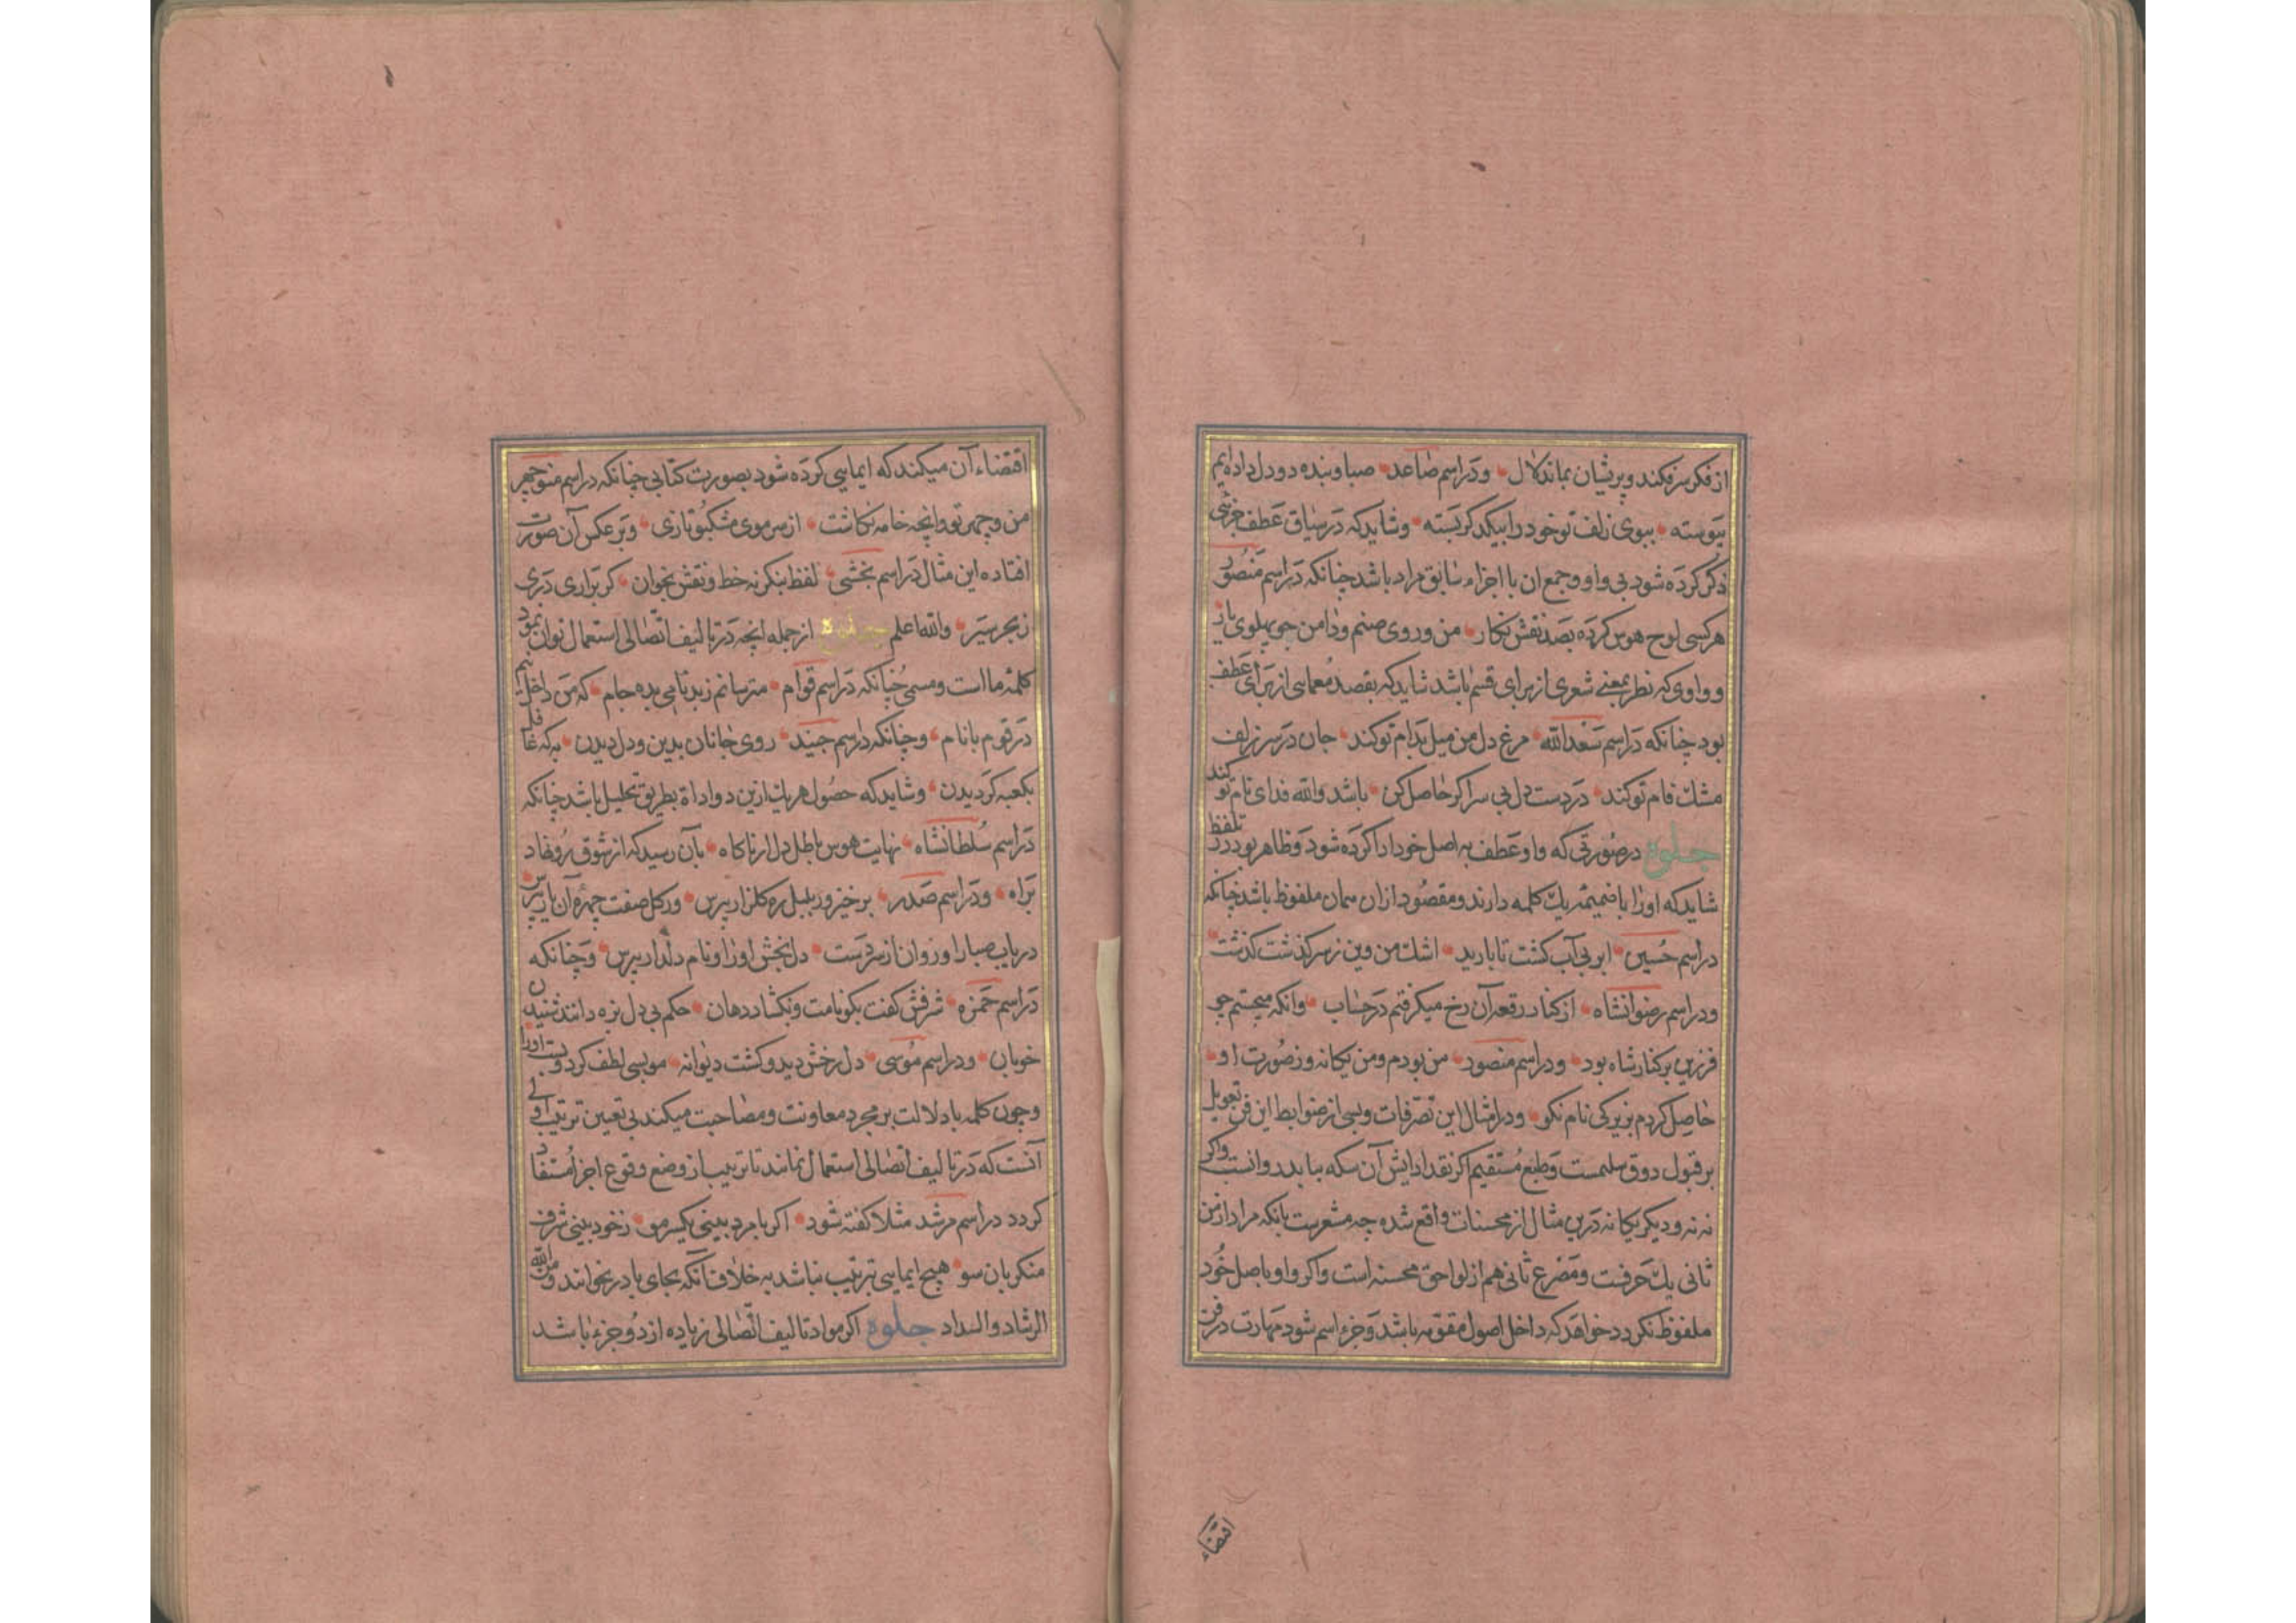 از فکر سر فکند و پریشان بماند لال ودر اسم صاعد صبا و بنده دو دل داده‌ایم
پیوسته ببوی زلف تو خود را بیکدگر بسته وشاید که در سیاق عطف جزئی
ذکر کرده شود بی واو وجمع ان با اجزاء سابق مراد باشد چنانکه در اسم منصور
هر کسی لوح هوس کرده بصد نقش نکار من و روی صنم و دامن جو پهلوی یار
و واوی که نظر بمعنی شعری از برای قسم باشد شاید که بقصد معمایی از برای عطف
بود چنانکه در اسم سعدالله مرغ دل من میل بدام تو کند جان در سر زلف
مشک فام تو کند در دست دل بی سر اگر حاصل کن باشد والله فدای نام تو کند
جلوة در صورتی که واو عطف به اصل خود ادا کرده شود و ظاهر بود در تلفظ
شاید که اورا با ضمیمه یک کلمه دارند و مقصود ازان همان ملفوظ باشد چنانکه
در اسم حسین ابر بی آب کشت تا بارید اشک من وین ز سر کذشت کذشت
ودر اسم رضوانشاه از کنار رقعه آن رخ میکرفتم در حساب وانکه میجستم جو
فرزین بر کنار شاه بود ودر اسم منصور من بودم ومن یکانه وز صورت او
حاصل کردم بزیرکی نام نکو ودر امثال این تصرفات وبسی از ضوابط این فن تعویل
بر قبول ذوق سلیمست وطبع مستقیم اکر نقد ادایش آن سکه بیابد رواست واکر
نه نه و دیکر یکانه درین مثال از محسنات واقع شده چه مشعرست بانکه مراد از من
ثانی یک حرفست ومصرع ثانی هم از لواحق محسنه است واکر واو باصل خود
ملفوظ نکردد خواهد که داخل اصول مقومه باشد وجزء اسم شود مهارت در فن
اقتضاء
اقتضاء آن میکند که ایمایی کرده شود بصورت کتابی چنانکه در اسم منوجهر
من و چهر تو وانچه خامه نکاشت از سر موی مشکبو تازی وبر عکس آن صورت
افتاده این مثال در اسم بخشی لفظ بنکر نه خط و نقش بخوان کر براری دری
ز بحر سیر والله اعلم جلوة از جمله انچه در تالیف اتصالی استعمال توان نمود
کلمه ما است و مسمی چنانکه در اسم قوام مترسانم ز بدنامی بده جام که من داخل نیم
در قوم با نام وچنانکه در اسم جنید روی جانان بدین و دل دیدن به که غافل
بکعبه کردیدن وشاید که حصول هر یک ازین دو اداة بطریق تحلیل باشد چنانکه
در اسم سلطانشاه نهایت هوس باطل دل ار ناکاه بآن رسید که از شوق رو نهاد
براه ودر اسم صدر برخیز و ز بلبل ره کلزار بپرس ور کل صفت چهره آن یار بپرس
دریاب صبا را وروان از سر دست دل بخش اورا و نام دلدار بپرس وچنانکه
در اسم حمزه شرفش کفت بکو نامت و نکشاد دهان حکم بی دل نزه دانند شنیدن
خوبان ودر اسم موسی دل رخش دید وکشت دیوانه مو بسی لطف کرد وبست اورا
وچون کلمه با دلالت بر مجرد معاونت ومصاحبت میکند بی تعیین ترتیب اولی
آنست که در تالیف اتصالی استعمال نمانند تا ترتیب از وضع وقوع اجزا مستفاد
کردد در اسم مرشد مثلا کفته شود اکر با مرد بینی یکسر مو ز خود بینی شرف
منکر بان سو هیچ ایمایی بترتیب نباشد به خلاف آنکه بجای با در بخوانند ومن الله
الرشاد والسداد جلوة اکر مواد تالیف اتصالی زیاده از دو جزء باشد